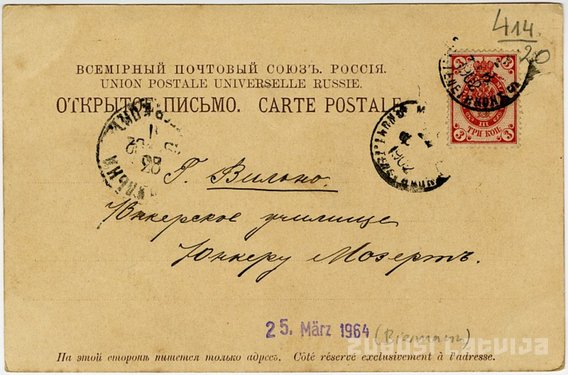 414
20
ВСЕМІРНЫЙ ПОЧТОВЫЙ СОЮЗЪ. РОССІЯ.
UNION POSTALE UNIVERSELLE RUSSIE.
ОТКРЫТОЕ ПИСЬМО. CARTE POSTALE
3 3
3 ТРИ КОП. 3
1902
Г. Вильно.
Юнкерское училище
Юнкеру Мозертъ.
25. März 1964 (Biemann)
На этой сторонѣ пишется только адресъ. Côté réservé exclusivement à l'adresse.